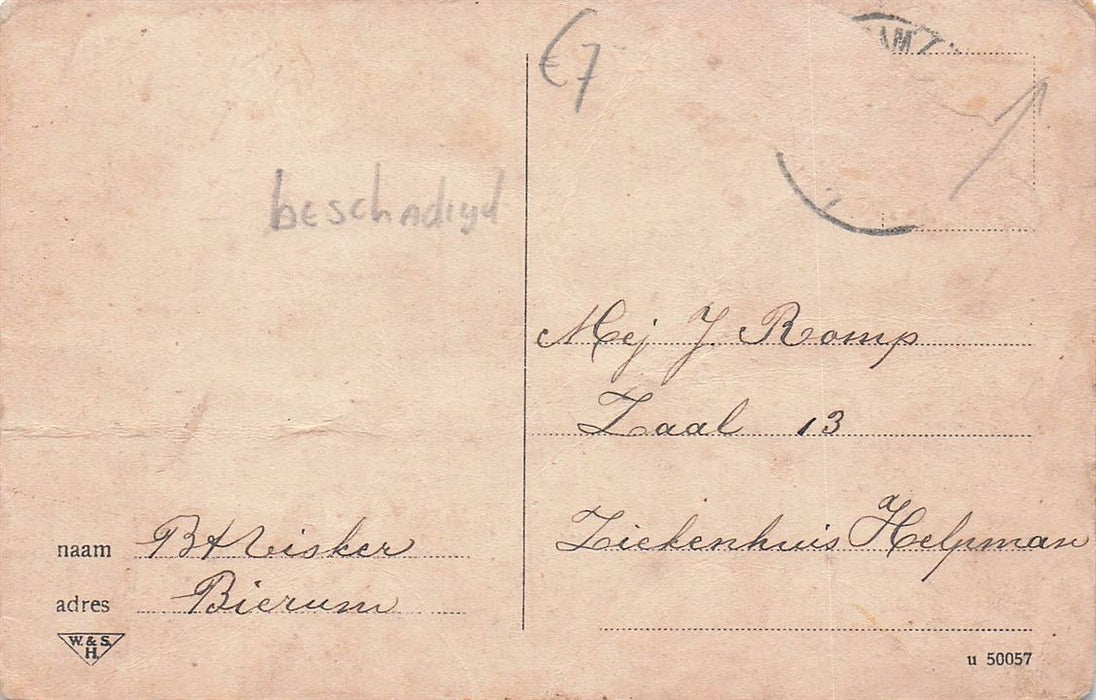 €7
AM
beschadigd
Mej J. Romp
Zaal 13
Ziekenhuis Helpman
naam BHVisker
adres Bierum
W. & S.
H.
u 50057